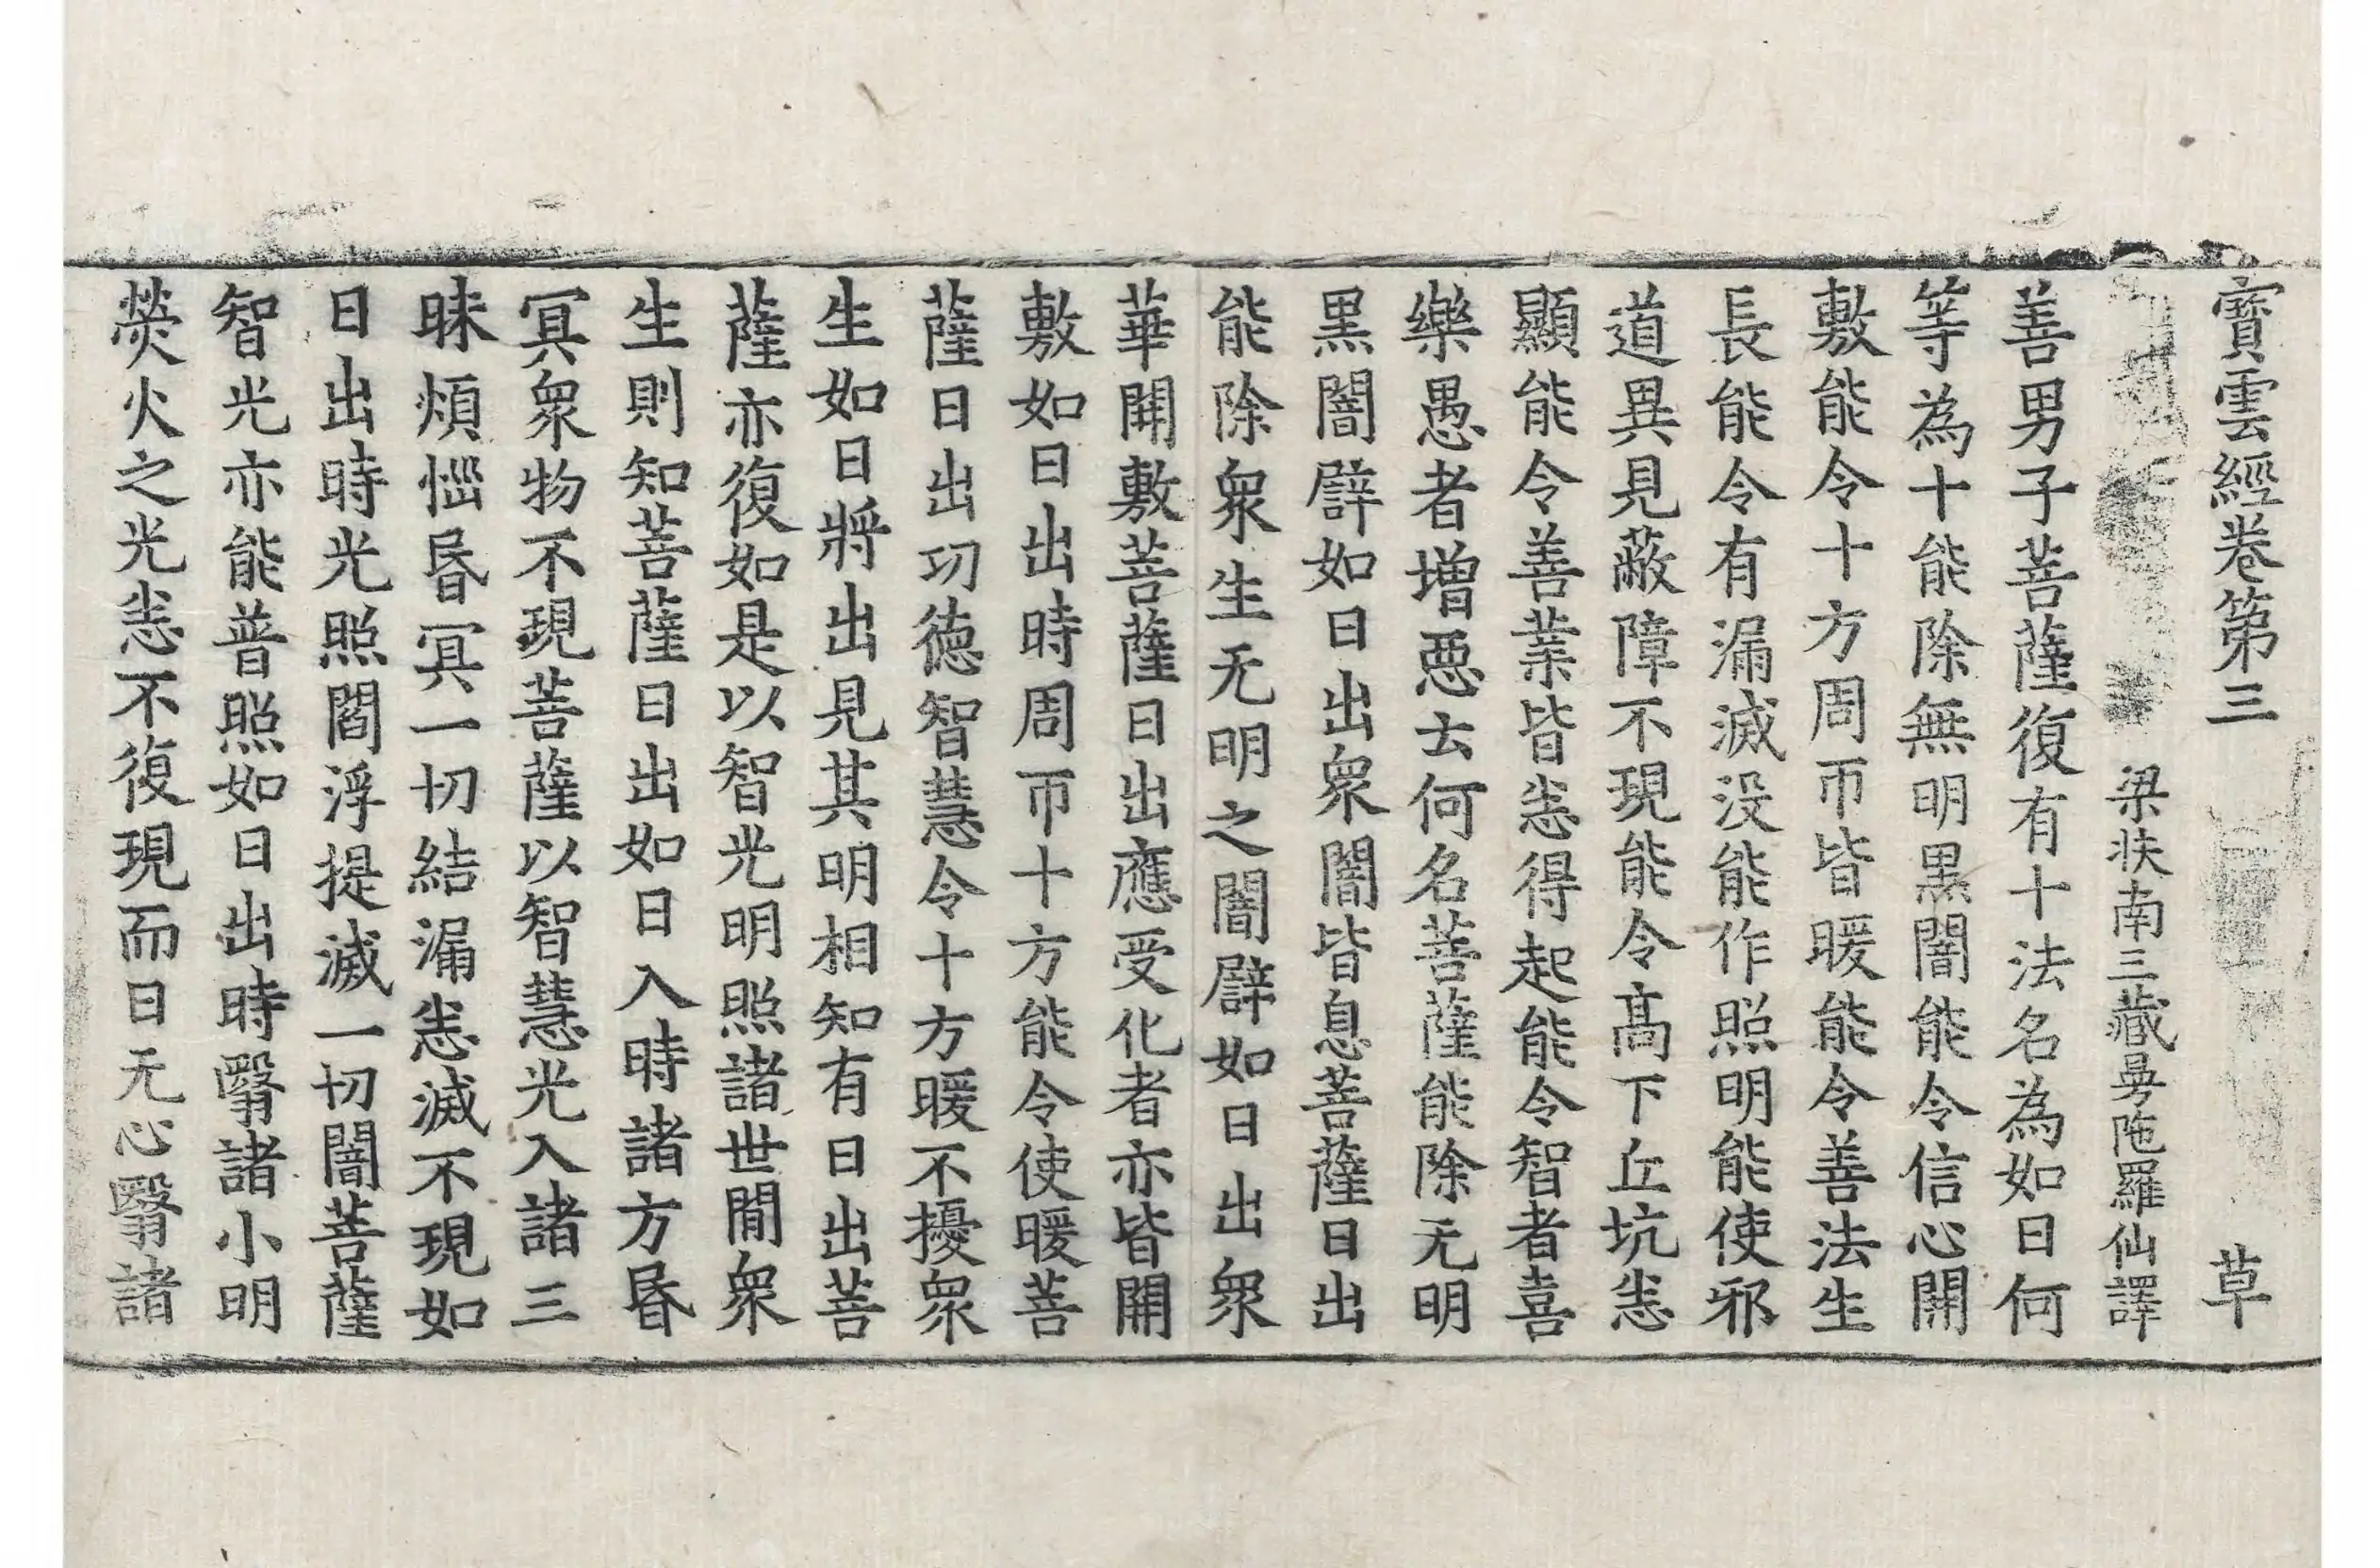 寶雲經卷第三 草
梁扶南三藏曼陁羅仙譯
善男子菩薩復有十法名為如日何
等為十能除無明黒闇能令信心開
敷能令十方周帀皆暖能令善法生
長能令有漏滅没能作照明能使邪
道異見蔽障不現能令髙下丘坑恙
顯能令善業皆恙得起能令智者喜
樂愚者增惡云何名菩薩能除无明
黒闇譬如日出衆闇皆息菩薩日出
能除衆生无明之闇譬如日出衆
華開敷菩薩日出應受化者亦皆開
敷如日出時周帀十方能令使暖菩
薩日出功德智慧令十方暖不擾衆
生如日將出見其明相知有日出菩
薩亦復如是以智光明照諸世閒衆
生則知菩薩日出如日入時諸方昬
冥衆物不現菩薩以智慧光入諸三
昧煩惱昬冥一切結漏恙滅不現如
日出時光照閻浮提滅一切闇菩薩
智光亦能普照如日出時翳諸小明
熒火之光恙不復現而日无心翳諸